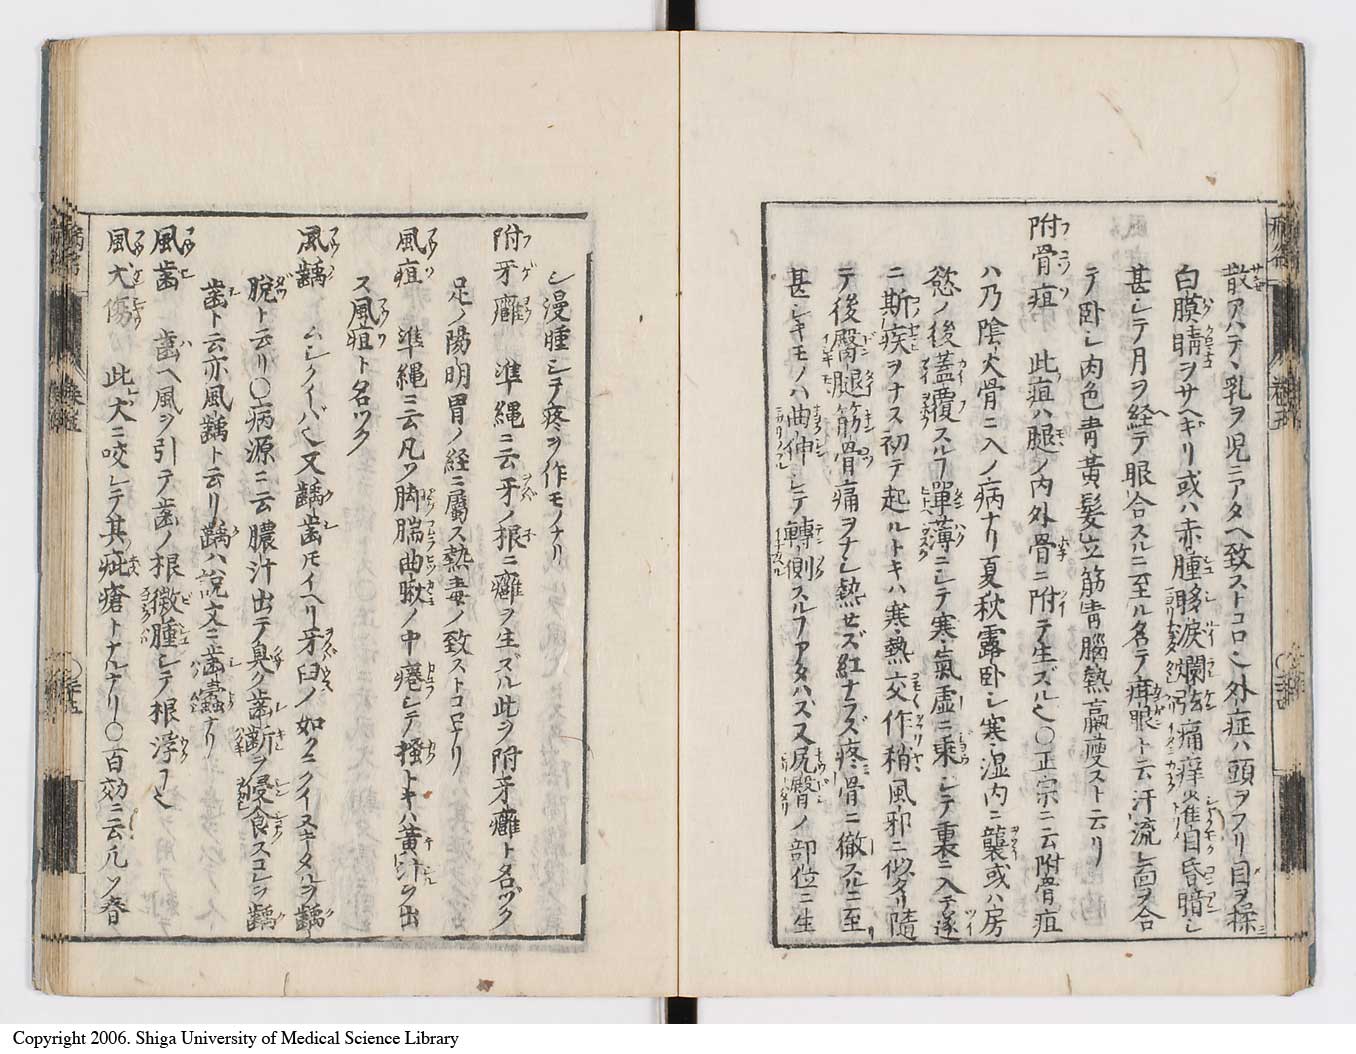 散アハテヽ乳ヲ児ニアタヘ致ストコロ也外症ハ頭ヲフリ目ヲ揉
白膜睛ヲサヘギリ或ハ赤腫眵涙爛眩痛痒雀目昏暗シ
甚シテ月ヲ経テ眼合スルニ至ル名テ疳眼ト云汗流レ面ヲ合
テ卧シ肉色青黃髮立筋青腦熱羸瘦スト云リ
附骨疽 此疽ハ腿ノ内外骨ニ附テ生ズル也〇正宗ニ云附骨疽
ハ乃陰人骨ニ入ノ病ナリ夏秋露卧シ寒湿内ニ襲或ハ房
慾ノ後蓋覆スルヿ單薄ニシテ寒氣虛ニ乘シテ裏ニ入テ遂
ニ斯疾ヲナス初テ起ルトキハ寒熱交作稍風邪ニ似タリ隨
テ後臀腿筋骨痛ヲナシ熱セズ紅ナラズ疼骨ニ徹スルニ至
甚シキモノハ曲伸シテ轉側スルヿアタハズ又尻臀ノ部位ニ生
シ漫腫シテ疼ヲ作モノナリ
附牙癰 準繩ニ云牙ノ根ニ癰ヲ生ズル此ヲ附牙癰ト名ヅク
足ノ陽明胃ノ経ニ屬ス熱毒ノ致ストコロナリ
風疽 準繩ニ云凡ソ脚腨曲𦚾ノ中痒シテ搔トキハ黃汁ヲ出
ス風疽ト名ヅク
風齲 ムシクイバ也又齲歯モイヘリ牙臼ノ如クニクイヌキタルヲ齲
脫ト云リ〇病源ニ云膿汁出テ臭ク歯齗ヲ侵食スコレヲ齲
歯ト云亦風齲ト云リ齲ハ說文ニ歯蠹ナリ
風歯 歯ヘ風ヲ引テ歯ノ根微腫シテ根浮ヿ也
風犬傷 此犬ニ咬レテ其疵瘡トナルナリ〇百効ニ云凡ソ春
Copyright 2006. Shiga University of Medical Science Library